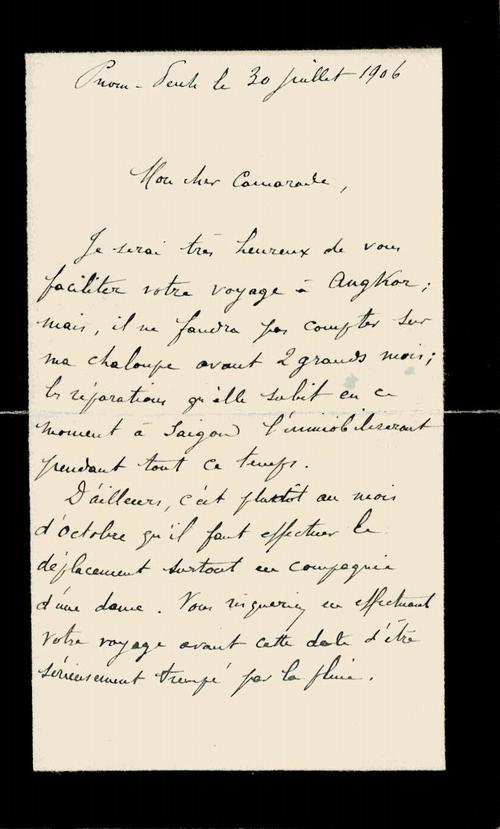 Pnom-Penh le 30 juillet 1906
Mon cher Camarade,
Je serai très heureux de vous
faciliter votre voyage à Angkor;
mais, il ne faudra pas compter sur
ma chaloupe avant 2 grands mois;
les réparations qu'elle subit en ce
moment à Saigon l'immobiliseront
pendant tout ce temps.
D'ailleurs, c'est plutôt au mois
d'octobre qu'il faut effectuer le
déplacement surtout en compagnie
d'une dame. Vous risqueriez en effectuant
votre voyage avant cette date d'être
sérieusement trempé par la pluie.